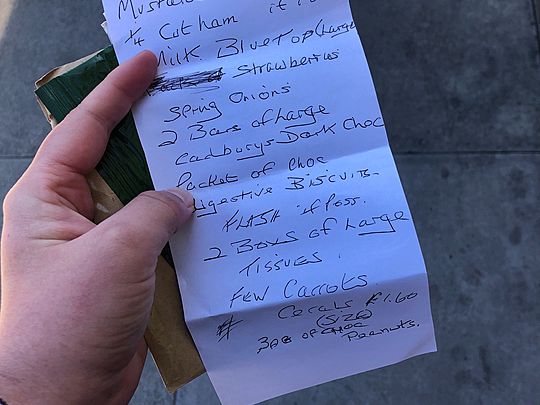 Mustard
1/4 Cut ham if
Milk Blue Top (Large
Strawberries
Spring Onions
2 Bars of Large
Cadburys Dark Choc
Packet of Choc
Digestive Biscuits
FLASH if Poss.
2 Boxes of Large
Tissues.
Few Carrots
Cereals £1.60
(SIZE)
3 PAC OF CHOC
Peanuts.